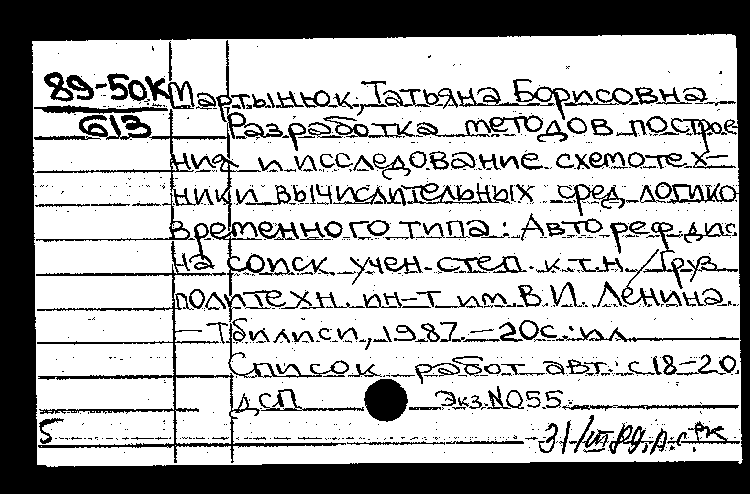 89-50К Мартынюк, Татьяна Борисовна
613 Разработка методов построе
ния и исследование схемотех-
ники вычислительных сред логико
временного типа: Автореф. дис
на соиск учен. степ. к.т.н. / Груз
политехн. ин-т им. В.И. Ленина.
—Тбилиси, 1987.—20с.: ил.
Список работ авт: с 18-20
ДСП Экз.№055.
5